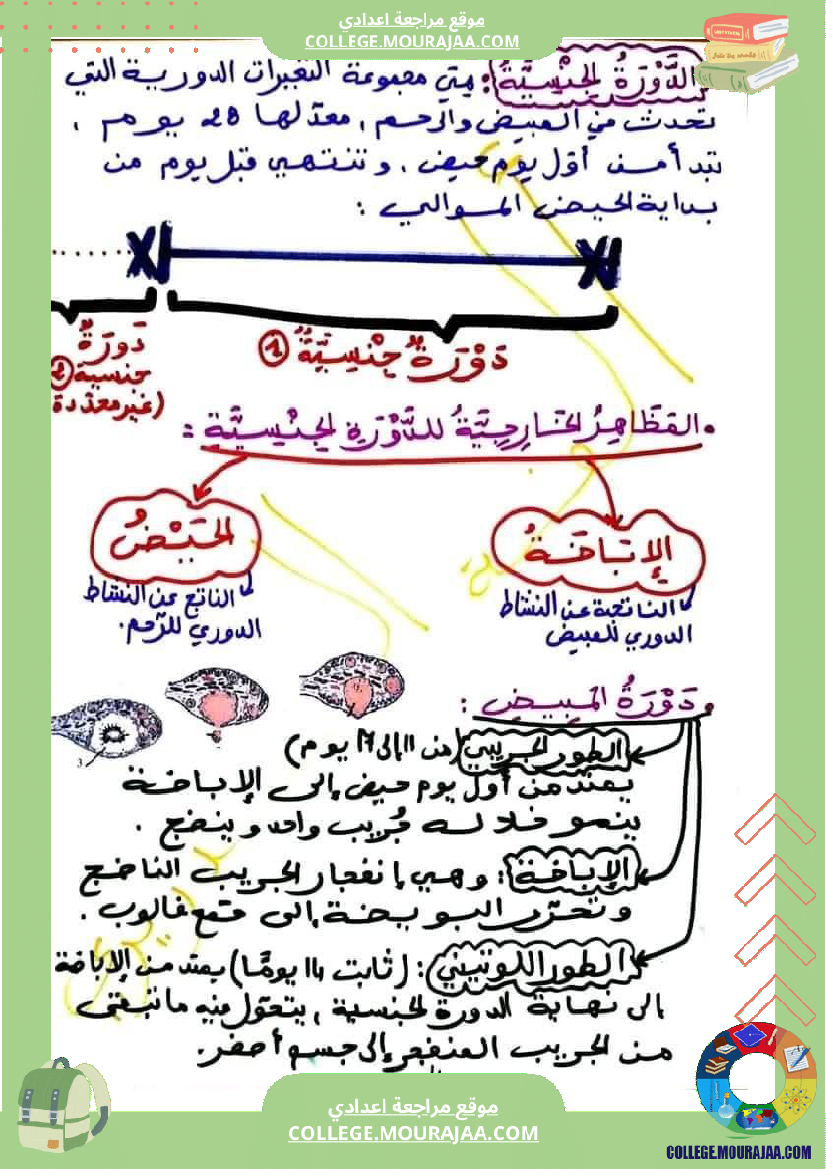 موقع مراجعة اعدادي
COLLEGE.MOURAJAA.COM
الدَّوْرَةُ الجِنْسِيَّةُ : هي مجموعة التغيرات الدورية التي
تحدث في المبيض والرحم ، معدّلها 28 يوم ،
تبدأ من أوّل يوم حيض ، و تنتهي قبل يوم من
بداية الحيض الموالي :
دَوْرَةٌ جِنْسِيَّةٌ ①
دَورَةٌ
جنسية ②
(غير معدّدة
. المَظَاهِرُ الخَارِجِيَّةُ للدَّوْرَةِ الجِنْسِيَّة :
الإِبَاضَةُ
الحَيْضُ
الناتجة عن النشاط
الدوري للمبيض
الناتج عن النشاط
الدوري للرّحم.
. دَوْرَةُ المَبِيضِ :
3
الطور الجريبي (من 11 إلى 17 يوم)
يمتد من أول يوم حيض إلى الإباضة
ينمو خلاله جُريب واحد وينضج .
الإباضة : وهي إنفجار الجريب الناضج
وتحرّر البويضة إلى قمع فالوب .
الطور اللوتيني : (ثابت 14 يومًا) يمتد من الإباضة
إلى نهاية الدورة الجنسية ، يتحوّل فيه ما تبقّى
من الجريب المنفجر إلى جسم أصفر.
موقع مراجعة اعدادي
COLLEGE.MOURAJAA.COM
COLLEGE.MOURAJAA.COM